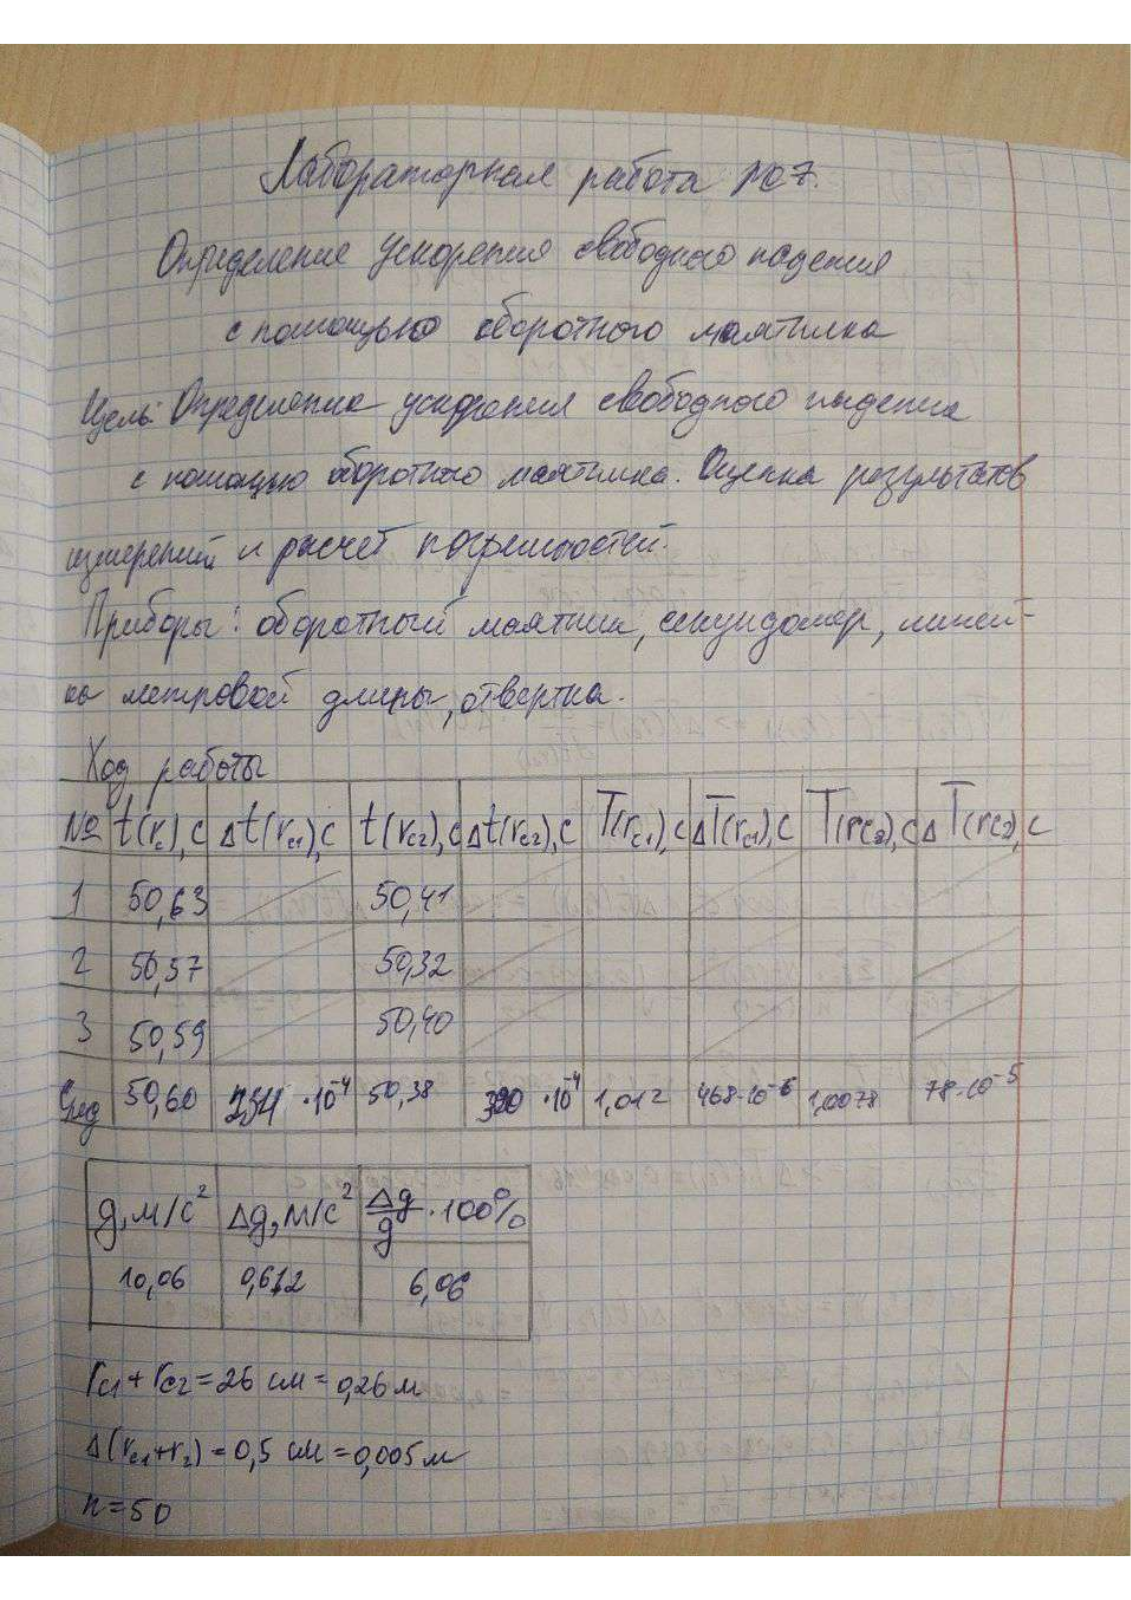 Лабораторная работа №7.
Определение ускорения свободного падения
с помощью оборотного маятника
Цель: Определение ускорения свободного падения
с помощью оборотного маятника. Оценка результатов
измерений и расчет погрешностей.
Приборы: оборотный маятник, секундомер, линей-
ка метровой длины, отвертка.
Ход работы
№ t(rc), с Δt(rc1), с t(rc2), с Δt(rc2), с T(rc1), с ΔT(rc1), с T(rc2), с ΔT(rc2), с
1 50,63 50,41
2 50,57 50,32
3 50,59 50,40
Сред 50,60 254 · 10⁻⁴ 50,38 390 · 10⁻⁴ 1,012 468·10⁻⁶ 1,0078 78·10⁻⁵
g, м/с² Δg, м/с² Δg/g · 100%
10,06 0,612 6,06
rc1 + rc2 = 26 см = 0,26 м
Δ(rc1+r2) = 0,5 см = 0,005 м
n = 50